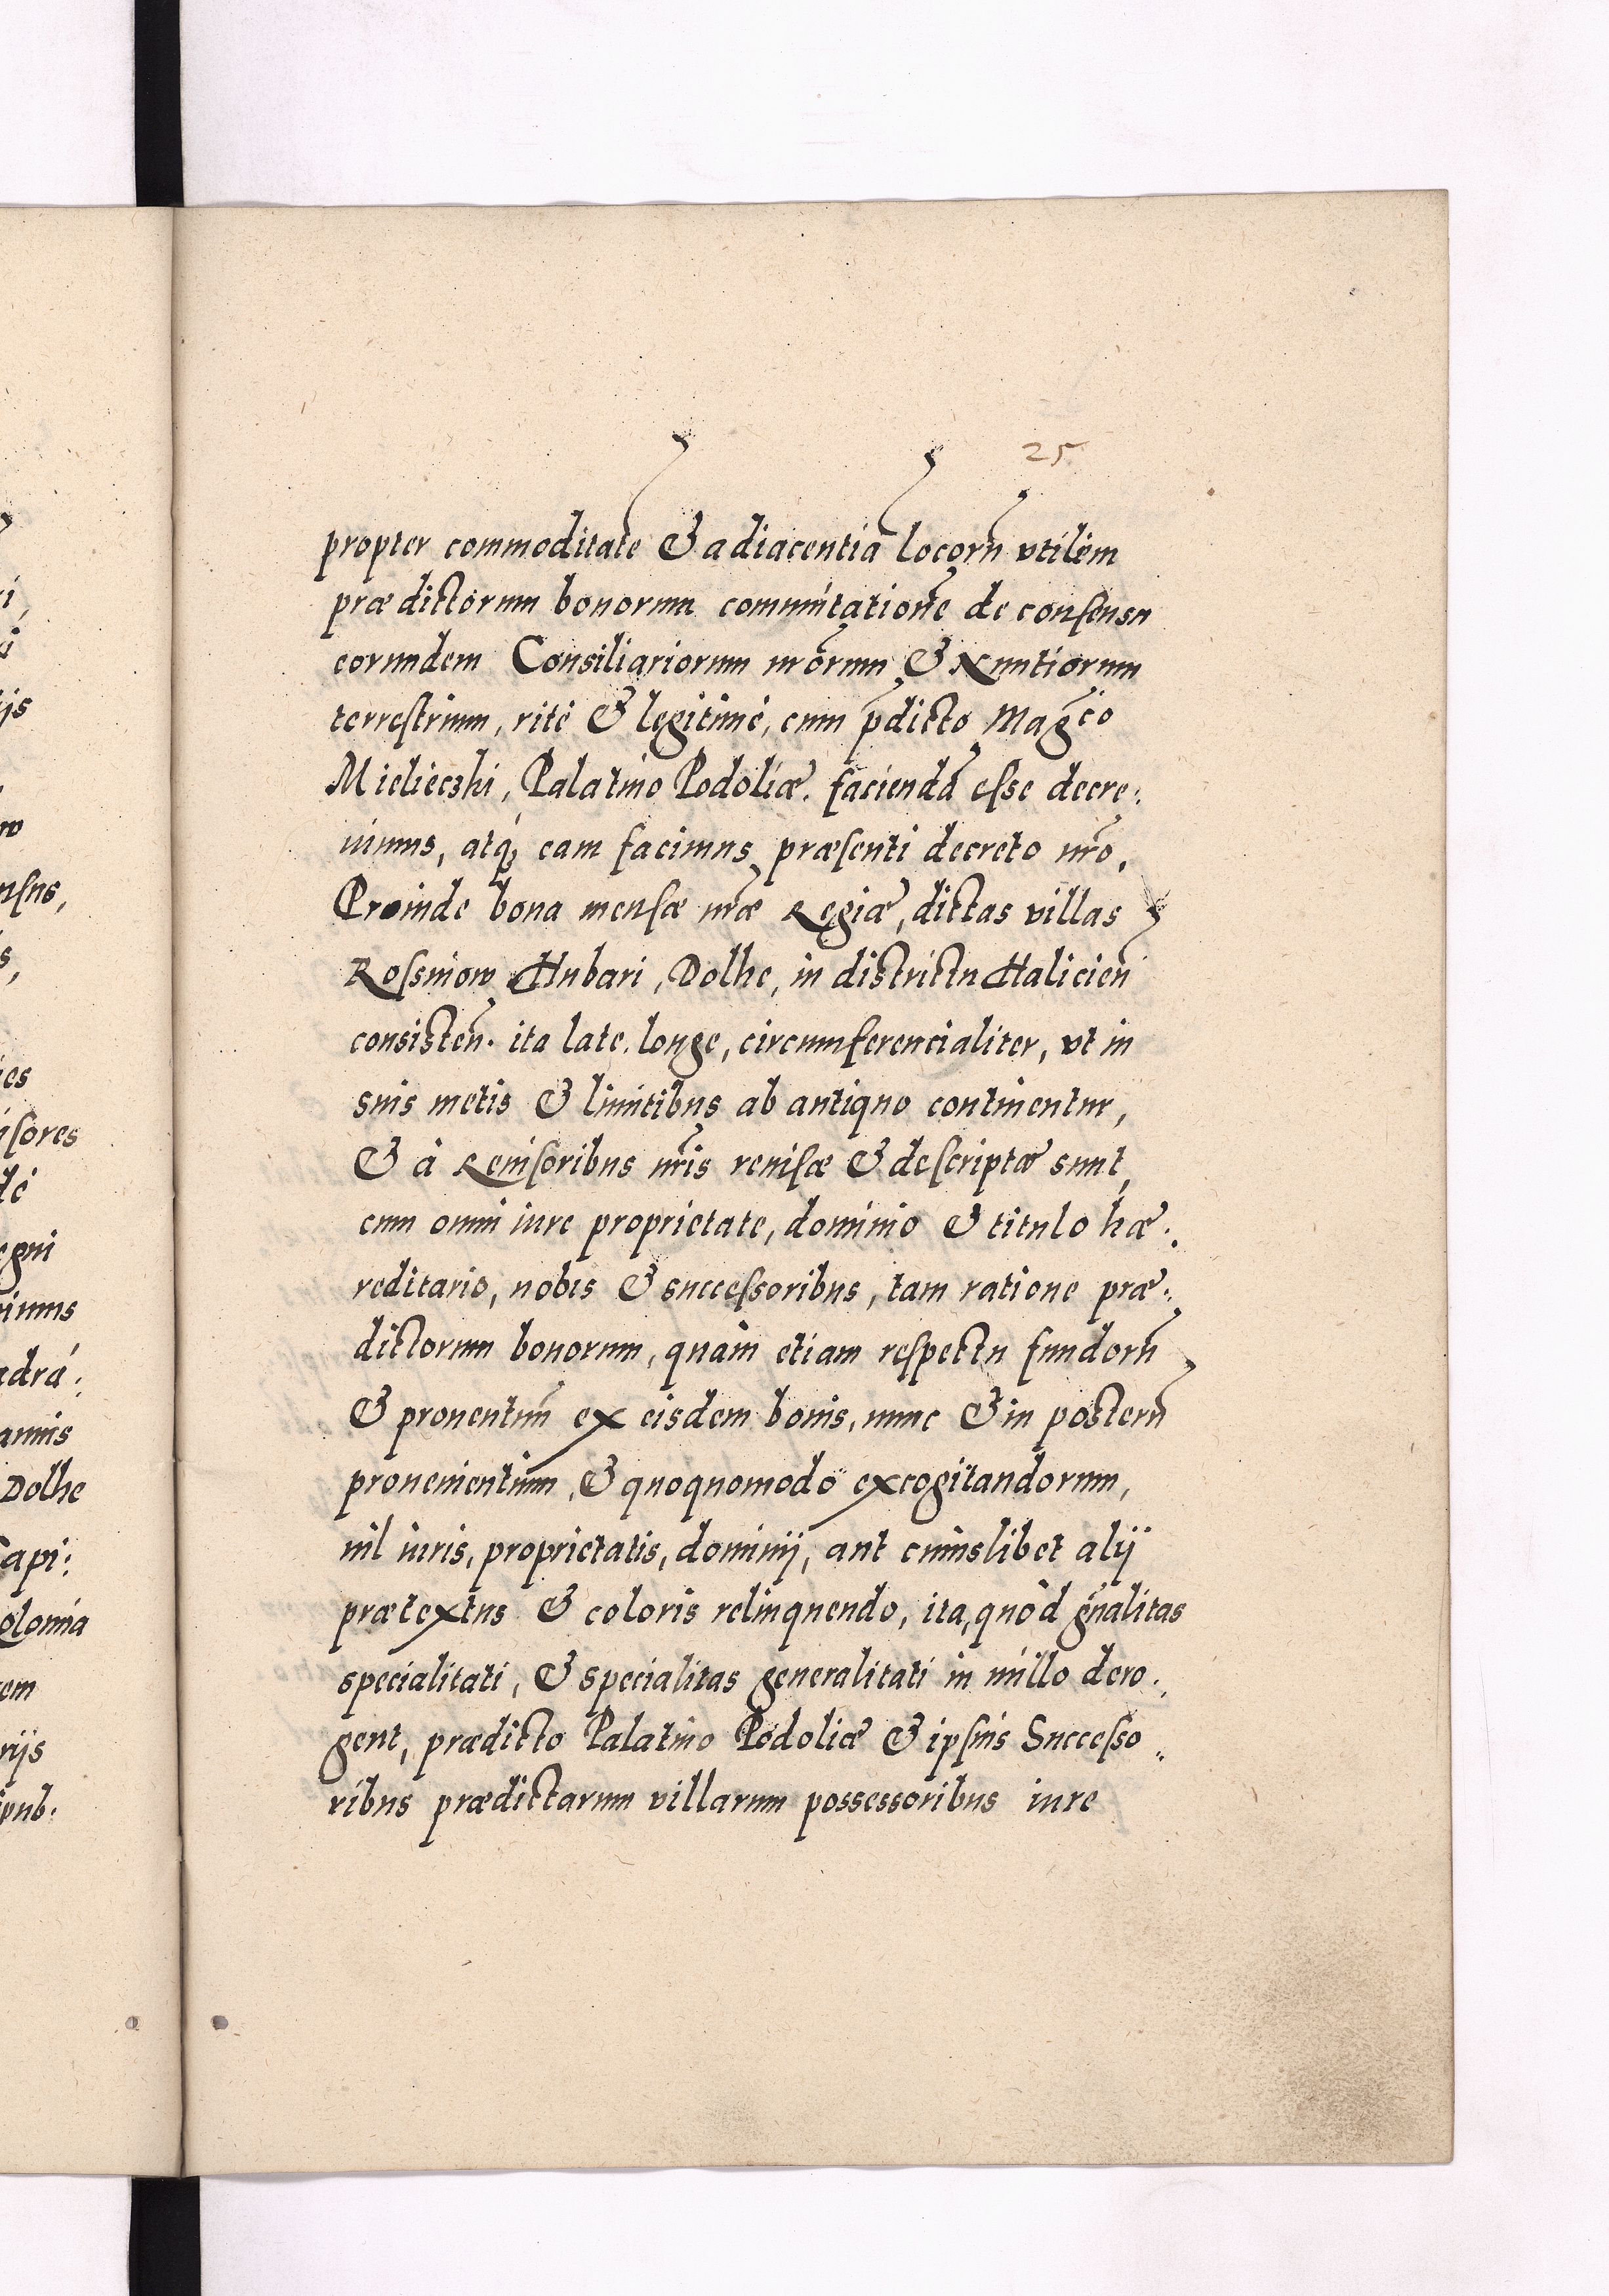 25
propter commoditatē & adiacentiā locorū vtilem
prædictorum bonorum commutationē de consensu
eorundem Consiliariorum nrōrum & Nuntiorum
terrestrium, rité & legitimé, cum p̄dicto Mag̃co
Mielieczki, Palatino Podoliæ. faciendā esse decre:
uimus, atq̃ eam facimus præsenti decreto nr̄o.
Proinde bona mensæ nr̄æ Regiæ, dictas villas
Rossniow Hubari, Dolhe, in districtu Halicień
consisteń. ita late. longe, circumferencialiter, vt in
suis metis & limitibus ab antiquo continentur,
& à Reuisoribus nr̄is reuisæ & descriptæ sunt,
cum omni iure proprietate, dominio & titulo hæ:
reditario, nobis & successoribus, tam ratione præ:
dictorum bonorum, quàm etiam respectu fundorū
& prouentuū ex eisdem bonis, nunc & in posterū
prouenientium, & quoquomodo excogitandorum,
nil iuris, proprietatis, dominij, aut cuiuslibet alij
prætextus & coloris relinquendo, ita, quòd gñalitas
specialitati, & specialitas generalitati in nullo dero:
gent, prædicto Palatino Podoliæ & ipsius Successo
ribus prædictarum villarum possessoribus iure
ijs
w
nsus,
s,
es
isores
dé
egni
imus
adrá:
annis
Dolhe
Capi:
olonia
em
rijs
ipub.